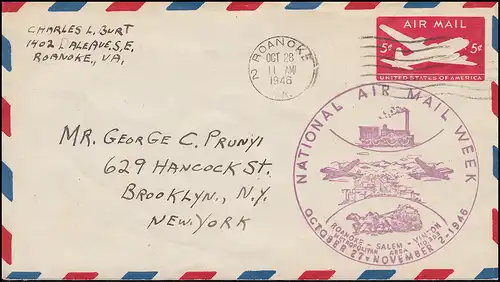 CHARLES L. BURT
1402 DALE AVE S.E.
ROANOKE, VA,
ROANOKE
2
OCT 28
11 AM
1946
AIR MAIL
5¢ 5¢
UNITED STATES OF AMERICA
MR. GEORGE C. PRUNYI
629 HANCOCK ST.
BROOKLYN., N.Y.
NEW YORK
NATIONAL AIR MAIL WEEK
ROANOKE - SALEM - VINTON
METROPOLITAN AREA
OCTOBER 27 - NOVEMBER 2 - 1946